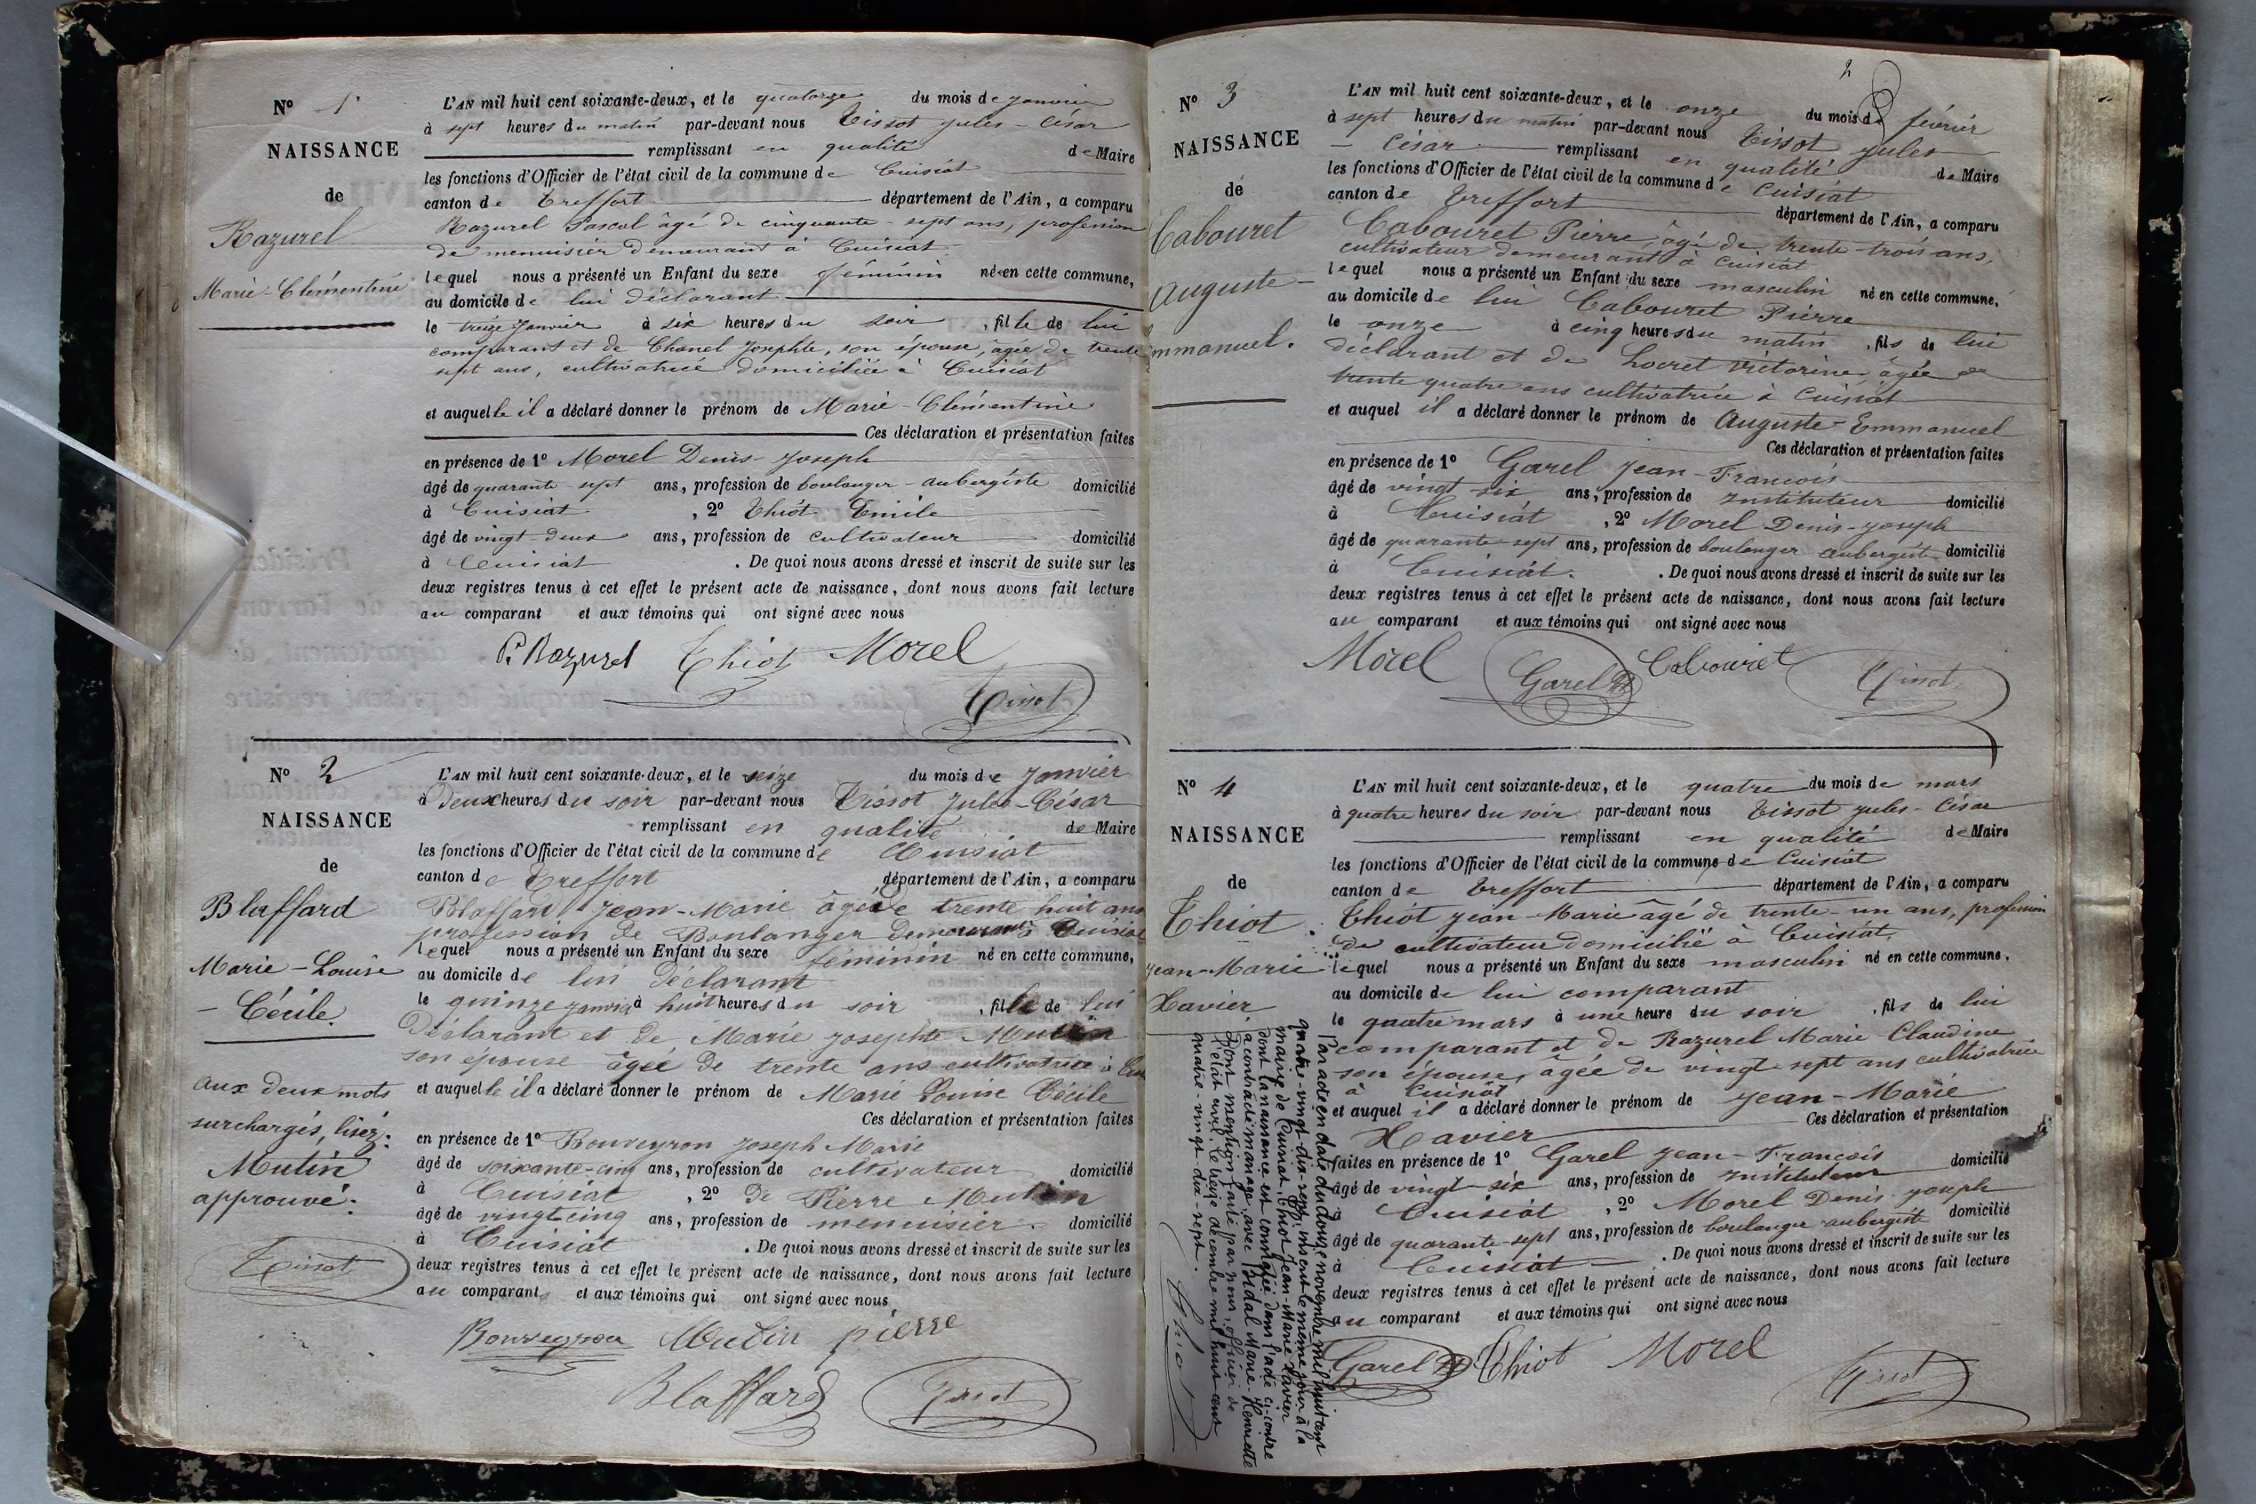 N° 1
NAISSANCE
de
Razurel
Marie-Clémentine
L'AN mil huit cent soixante-deux, et le quatorze du mois de janvier
à sept heures du matin par-devant nous Tissot jules-César
remplissant en qualité de Maire
les fonctions d'Officier de l'état civil de la commune de Cuisiat
canton de Treffort département de l'Ain, a comparu
Razurel Pascal âgé de cinquante-sept ans, profession
de menuisier demeurant à Cuisiat
lequel nous a présenté un Enfant du sexe féminin né en cette commune,
au domicile de lui déclarant
le treize janvier à six heures du soir, fille de lui
comparant et de Chanel josephte, son épouse, âgée de trente
sept ans, cultivatrice domiciliée à Cuisiat
et auquelle il a déclaré donner le prénom de Marie-Clémentine
Ces déclaration et présentation faites
en présence de 1° Morel Denis-joseph
âgé de quarante-sept ans, profession de boulanger-aubergiste domicilié
à Cuisiat, 2° Thiot Emile
âgé de vingt-deux ans, profession de cultivateur domicilié
à Cuisiat. De quoi nous avons dressé et inscrit de suite sur les
deux registres tenus à cet effet le présent acte de naissance, dont nous avons fait lecture
au comparant et aux témoins qui ont signé avec nous
P. Razurel Thiot Morel
Tissot
N° 2
NAISSANCE
de
Blaffard
Marie-Louise
-Cécile.
aux deux mots
surchargés, lisez:
Mutin
approuvé:
Tissot
L'AN mil huit cent soixante-deux, et le seize du mois de janvier
à Deux heures du soir par-devant nous Tissot jules-César
remplissant en qualité de Maire
les fonctions d'Officier de l'état civil de la commune de Cuisiat
canton de Treffort département de l'Ain, a comparu
Blaffard jean-Marie âgé de trente huit ans
profession de Boulanger demeurant à Cuisiat
lequel nous a présenté un Enfant du sexe féminin né en cette commune,
au domicile de lui déclarant
le quinze janvier à huit heures du soir, fille de lui
Déclarant et de Marie josephte Mutin
son épouse âgée de trente ans cultivatrice à
et auquelle il a déclaré donner le prénom de Marie Louise Cécile
Ces déclaration et présentation faites
en présence de 1° Bouveyron joseph Marie
âgé de soixante-cinq ans, profession de cultivateur domicilié
à Cuisiat, 2° de Pierre Mutin
âgé de vingt cinq ans, profession de menuisier domicilié
à Cuisiat. De quoi nous avons dressé et inscrit de suite sur les
deux registres tenus à cet effet le présent acte de naissance, dont nous avons fait lecture
au comparant et aux témoins qui ont signé avec nous
Bouveyron Mutin pierre
Blaffard Tissot
2
N° 3
NAISSANCE
de
Cabouret
Auguste-
Emmanuel.
L'AN mil huit cent soixante-deux, et le onze du mois de février
à sept heures du matin par-devant nous Tissot jules
-César remplissant en qualité de Maire
les fonctions d'Officier de l'état civil de la commune de Cuisiat
canton de Treffort département de l'Ain, a comparu
Cabouret Pierre, âgé de trente-trois ans,
cultivateur demeurant à Cuisiat
lequel nous a présenté un Enfant du sexe masculin né en cette commune,
au domicile de lui Cabouret Pierre
le onze à cinq heures du matin, fils de lui
déclarant et de victorine, âgée de
trente quatre ans cultivatrice à Cuisiat
et auquel il a déclaré donner le prénom de Auguste-Emmanuel
Ces déclaration et présentation faites
en présence de 1° Garel jean-François
âgé de vingt-six ans, profession de instituteur domicilié
à Cuisiat, 2° Morel Denis-joseph
âgé de quarante-sept ans, profession de boulanger aubergiste domicilié
à Cuisiat. De quoi nous avons dressé et inscrit de suite sur les
deux registres tenus à cet effet le présent acte de naissance, dont nous avons fait lecture
au comparant et aux témoins qui ont signé avec nous
Morel Garel Cabouret Tissot
N° 4
NAISSANCE
de
Thiot.
jean-Marie
Xavier
L'AN mil huit cent soixante-deux, et le quatre du mois de mars
à quatre heures du soir par-devant nous Tissot jules-César
remplissant en qualité de Maire
les fonctions d'Officier de l'état civil de la commune de Cuisiat
canton de Treffort département de l'Ain, a comparu
Thiot jean-Marie âgé de trente-un ans, profession
de cultivateur domicilié à Cuisiat,
lequel nous a présenté un Enfant du sexe masculin né en cette commune,
au domicile de lui comparant
le quatre mars à une heure du soir, fils de lui
comparant et de Razurel Marie Claudine
son épouse, âgée de vingt sept ans cultivatrice
à Cuisiat
et auquel il a déclaré donner le prénom de jean-Marie
Xavier Ces déclaration et présentation
faites en présence de 1° Garel jean-François domicilié
âgé de vingt-six ans, profession de instituteur
à Cuisiat, 2° Morel Denis joseph
âgé de quarante-sept ans, profession de boulanger aubergiste domicilié
à Cuisiat. De quoi nous avons dressé et inscrit de suite sur les
deux registres tenus à cet effet le présent acte de naissance, dont nous avons fait lecture
au comparant et aux témoins qui ont signé avec nous
Garel Thiot Morel
Tissot
Par acte en date du douze novembre mil huit cent
quatre-vingt-dix-sept, inscrit le même jour à la
mairie de Cuisiat, Thiot Jean-Marie Xavier
dont la naissance est constatée dans l'acte ci-contre
a contracté mariage avec Marie-Henriette
Dont mention faite par nous, officier de
l'état civil, le treize décembre mil huit cent
quatre-vingt-dix-sept.
Thiot